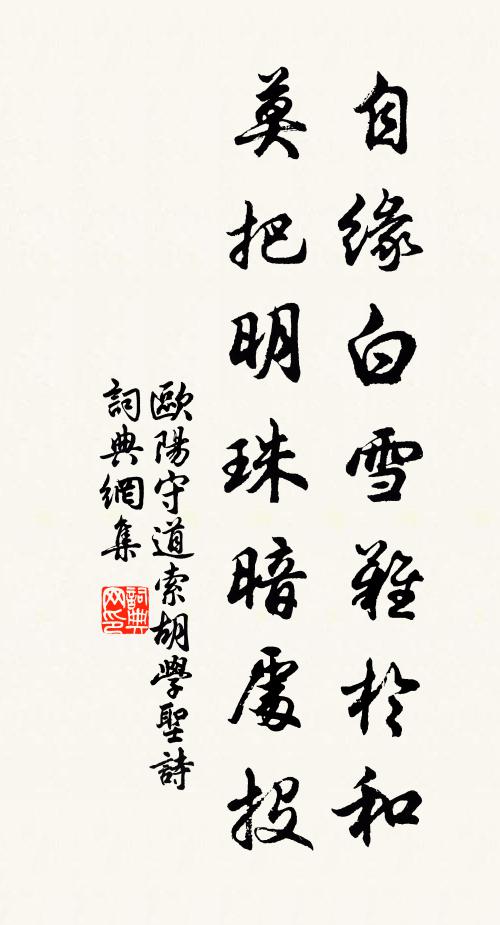 自緣白雪難於和
莫把明珠暗處投
歐陽守道索胡學聖詩
詞典網集
詞典网印